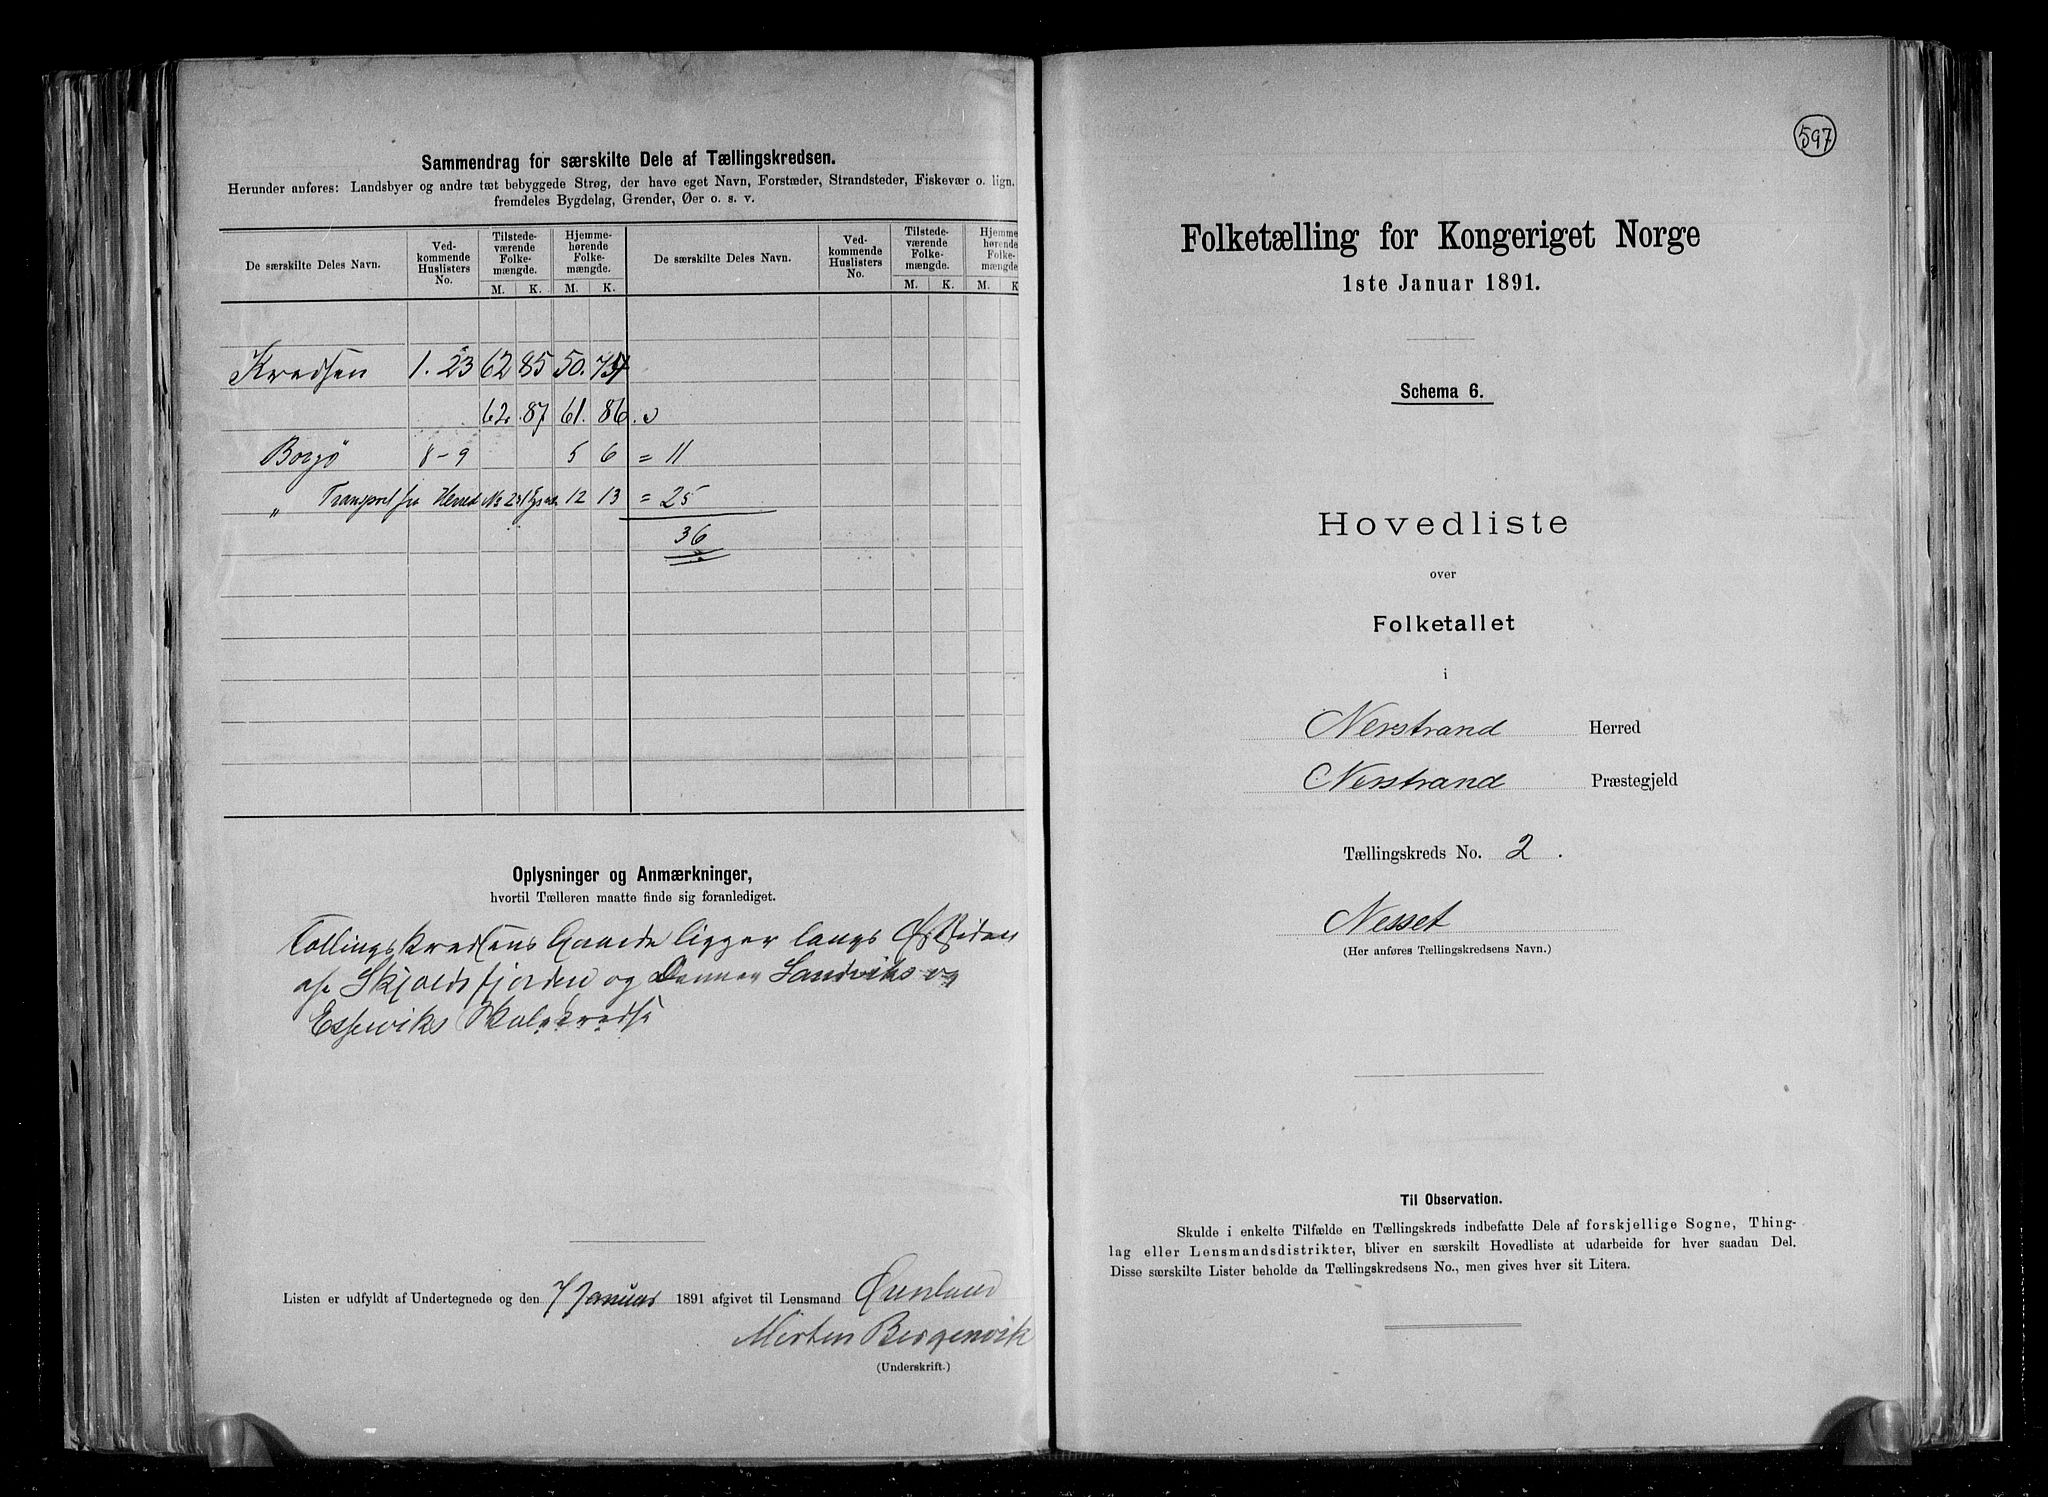 Sammendrag for særskilte Dele af Tællingskredsen.
Herunder anføres: Landsbyer og andre tæt bebyggede Strøg, der have eget Navn, Forstæder, Strandsteder, Fiskevær o. lign.
fremdeles Bygdelag, Grender, Øer o. s. v.
De særskilte Deles Navn.
Ved-
kommende
Huslisters
No.
Tilstede-
værende
Folke-
mængde.
M. K.
Hjemme-
hørende
Folke-
mængde.
M. K.
De særskilte Deles Navn.
Ved-
kommende
Huslisters
No.
Tilstede-
værende
Folke-
mængde.
M. K.
Hjemme-
hørende
Folke-
mængde.
M. K
Kredsen 1. 23 62 85 50.
62. 87 61. 86.
Borgø 8-9 5 6 = 11
" Transport fra Herred No 12 13 = 25
36
Oplysninger og Anmærkninger,
hvortil Tælleren maatte finde sig foranlediget.
Tællingskredsens Gaarde ligger langs
af Skjoldsfjorden og Danner Sandviks og
Espeviks Skolekreds
Listen er udfyldt af Undertegnede og den 7 Januar 1891 afgivet til Lensmand
Morten Borgenvik
(Underskrift.)
597
Folketælling for Kongeriget Norge
1ste Januar 1891.
Schema 6.
Hovedliste
over
Folketallet
i
Nerstrand Herred
Nerstrand Præstegjeld
Tællingskreds No. 2.
Nesset
(Her anføres Tællingskredsens Navn.)
Til Observation.
Skulde i enkelte Tilfælde en Tællingskreds indbefatte Dele af forskjellige Sogne, Thing-
lag eller Lensmandsdistrikter, bliver en særskilt Hovedliste at udarbeide for hver saadan Del.
Disse særskilte Lister beholde da Tællingskredsens No., men gives hver sit Litera.